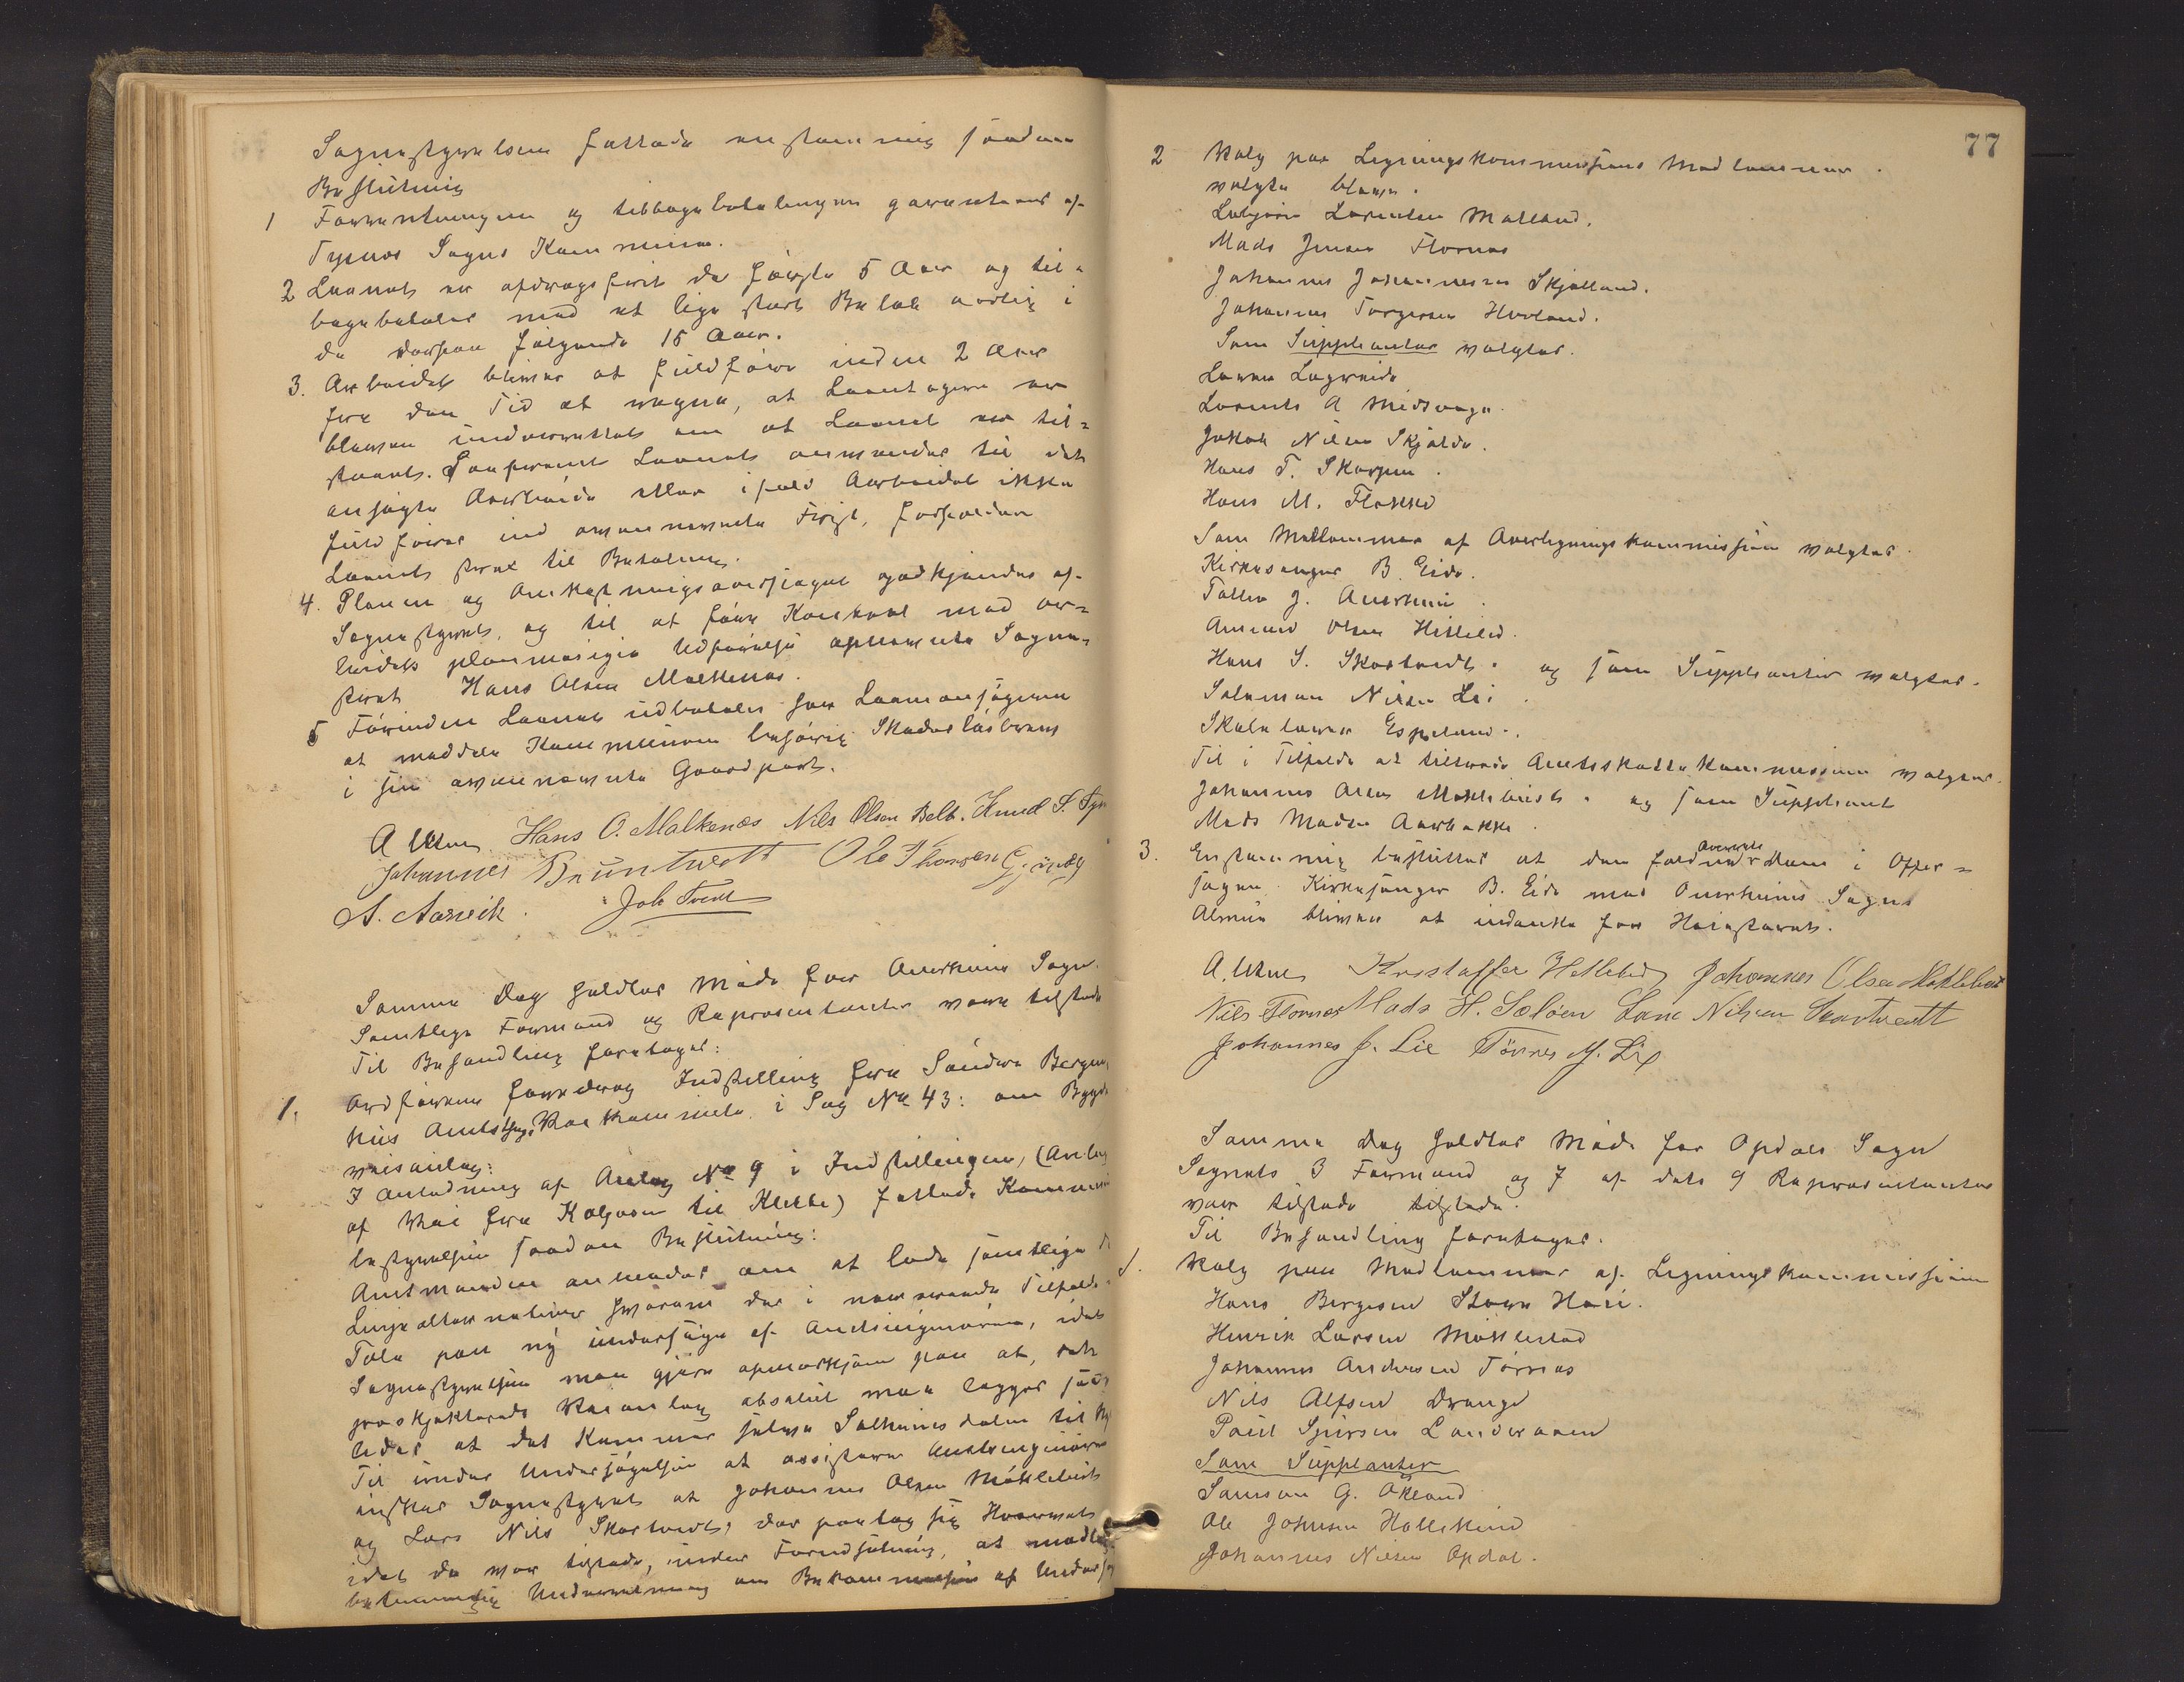 Sognestyrelsen fattede enstemmig saadan
Beslutning
1 Forrentningen og tilbagebetalingen garanteres af
Tysnes Sogns Kommune.
2 Laanet er afdragsfrit de første 5 Aar og til-
bagebetales med et lige stort Beløb aarlig i
de derpaa følgende 15 Aar.
3. Arbeidet bliver at fuldføre inden 2 Aar
fra den Tid at regne, at Laantageren er
bleven underrettet om at Laanet er til-
staaet. Saafremt Laanet anvendes til det
ansøgte Arbeide eller ifald Arbeidet ikke
fuldføres ind ovennevnte Frist, forfalder
Laanet strax til Betaling.
4. Planen og Omkostningsoverslaget godkjendes af
Sognestyret, og til at føre Kontrol med ar-
beidets planmæsige Udførelse opnevnte Sogne-
styret Hans Olsen Malkenes.
5 Førinden Laanet udbetales har Laanansøgeren
at meddele Kommunen behørig Skadesløsbrev
i sin ovennevnte Gaardpart.
A Uknes Hans O. Malkenæs Nils Olsen Belt. Knud S. Tys
Johannes Bruntvedt Ole Thorsen Gjerstad
A. Aarvik. Job Tvedt
Samme Dag holdtes Møde for Onarheims Sogn.
Samtlige Formænd og Repræsentanter vare tilstede
Til Behandling foretoges:
1. Ordføreren foredrog Indstilling fra Søndre Bergen-
hus Amtsthings Veikommite i Sag No 43: om Bygde
veisanlæg:
I Anledning af Anlæg No 9 i Indstillingen, (Anlæg
af Vei fra Koljaren til Klette) fattede Kommune
bestyrelsen saadan Beslutning:
Amtmanden anmodes om at lade samtlige d
Linjealternativer hvorom der i nærværende Tilfælde
Tale paa ny undersøge af Amtsingeniøren, idet
Sognestyrelsen maa gjøre opmærksom paa at, det
prosjekterede Veianlæg absolut maa lægges saa
ledes at det kommer selve Solheimsdalen til Ny
Til under Undersøgelsen at assistere Amtsingeniøren
ønsker Sognestyret at Johannes Olsen Møklebust
og Lars Nils Skartvedt, der paatog sig Hvervet
idet de var tilstede, under Forudsætning, at meddeles
betimelig Underretning om Bekommelsen af Undersø
77
2 Valg paa Ligningskommissions Medlemmer.
valgte bleve.
Lebjørn Lorentsen Malland.
Mads Jensen Flornes
Johannes Johannessen Skjelland.
Johannes Torgersen Hovland.
Som Suppleanter valgtes.
Larven Lagreide
Lorents A Medsvage.
Jakob Nilsen Skjelde.
Hans T. Skorpen.
Hans M. Flakke
Som Medlemmer af Overligningskommissionen valgtes.
Kirkesanger B. Eide.
Tollev J. Onarheim.
Amund Olsen Hitleled.
Hans S. Skartvedt. og som Suppleanter valgtes.
Salamon Nilsen Lie.
Skolelærer Espeland.
Til i Tilfælde at tiltræde Amtsskattekommissionen valgtes.
Johannes Olsen Møklebust. og som Suppleant
Mads Madsen Aarbakke.
3. Enstemmig besluttes at den faldende Dom i Offer-
sagen Kirkesanger B. Eide mod Onarheims Sogns
Almue bliver at indanke for Høiesteret.
A. Uknes Kristoffer Hetleled Johannes Olsen Møklebust
Nils Flornes Mads H. Seløen Lars Nilsen Skartvedt
Johannes J. Lie Tørres M. Lie
Samme Dag holdtes Møde for Opdals Sogn
Sognets 3 Formænd og 7 af dets 9 Repræsentanter
var tilstede tilstede.
Til Behandling foretoges.
1. Valg paa Medlemmer af Ligningskommissionen
Hans Bergesen Store Hovi.
Henrik Larsen Møklestad
Johannes Andersen Tørnes
Nils Alfsen Drange
Poul Sjursen Landeraaen
Som Suppleanter
Samson G. Økland
Ole Johnsen Hallekind
Johannes Nilsen Opdal.